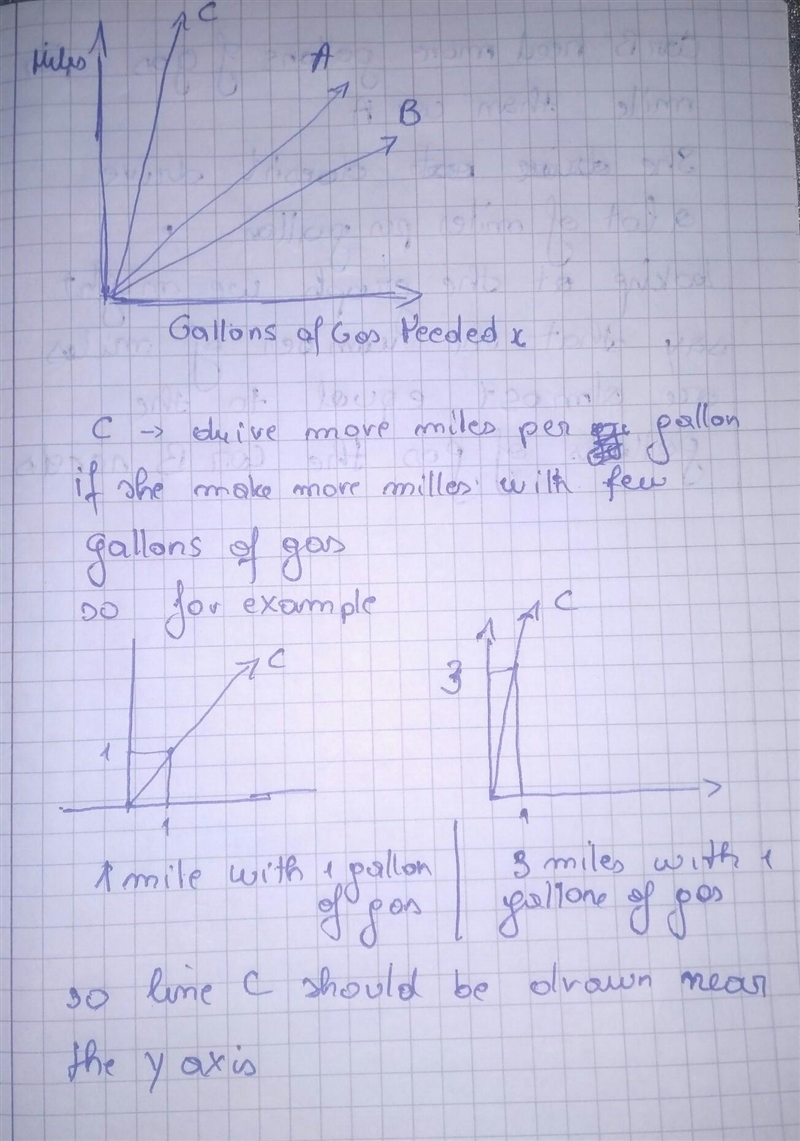 C
Miles
A
B
Gallons of Gas Needed x
C → drive more miles per gallon
if she make more milles with few
gallons of gas
so for example
C
C
3
1
1
1
1 mile with 1 gallon
of gas
3 miles with 1
gallone of gas
so line C should be drawn near
the y axis